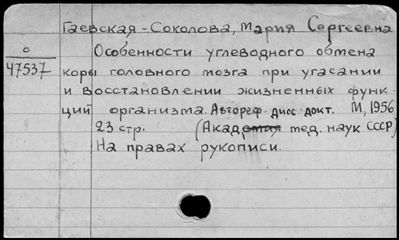 Гаевская-Соколова, Мария Сергеевна
О
47537
Особенности углеводного обмена
коры головного мозга при угасании
и восстановлении жизненных функ-
ций организма. Автореф. дисс. докт. М, 1956
23 стр. (Академия мед. наук СССР)
На правах рукописи.